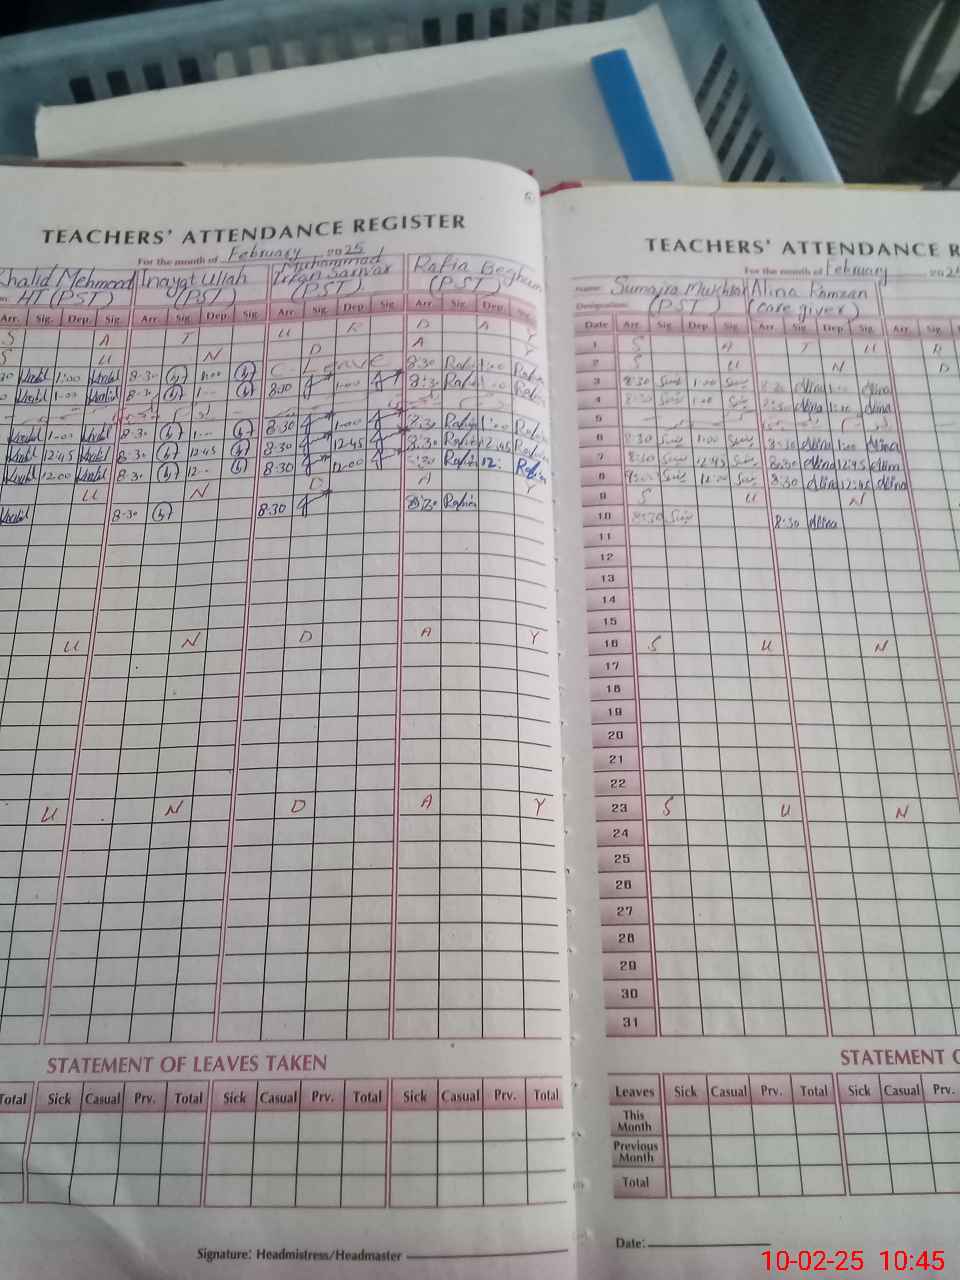 TEACHERS' ATTENDANCE REGISTER
For the month of February 2025
Khalid Mehmood Inayat Ullah Muhammad Irfan Sarwar Rafia Beghum
HT (PST) (PST) (PST) (PST)
Arr. Sig. Dep. Sig. Arr. Sig. Dep. Sig. Arr. Sig. Dep. Sig. Arr. Sig. Dep. Sig.
S A T U R D A Y
S U N D A Y
Khalid 1:00 Khalid 8:30 1:00 C-Leave 8:30 Rafia 1:00 Rafia
Khalid 1:00 Khalid 8:30 1:00 8:30 1:00 8:30 Rafia 1:00 Rafia
Khalid 1:00 Khalid 8:30 1:00 8:30 1:00 8:30 Rafia 1:00 Rafia
Khalid 12:45 Khalid 8:30 12:45 8:30 12:45 8:30 Rafia 12:45 Rafia
Khalid 12:00 Khalid 8:30 12:00 8:30 12:00 8:30 Rafia 12: Rafia
U N D A Y
Khalid 8:30 8:30 8:30 Rafia
U N D A Y
U N D A Y
STATEMENT OF LEAVES TAKEN
Total Sick Casual Prv. Total Sick Casual Prv. Total Sick Casual Prv. Total
Signature: Headmistress/Headmaster
TEACHERS' ATTENDANCE R
For the month of February 202
Name: Sumaira Mukhtar Alina Ramzan
Designation: (PST) (care giver)
Date Arr. Sig. Dep. Sig. Arr. Sig. Dep. Sig. Arr. Sig. D
1 S A T U R
2 S U N D
3 8:30 1:00 8:30 Alina 1:00 Alina
4 8:30 1:00 8:30 Alina 1:00 Alina
5
6 8:30 1:00 8:30 Alina 1:00 Alina
7 8:30 12:45 8:30 Alina 12:45 Alina
8 12:00 8:30 Alina 12:00 Alina
9 S U N
10 8:30 8:30 Alina
11
12
13
14
15
16 S U N
17
18
19
20
21
22
23 S U N
24
25
26
27
28
29
30
31
STATEMENT O
Leaves Sick Casual Prv. Total Sick Casual Prv.
This Month
Previous Month
Total
Date:
10-02-25 10:45